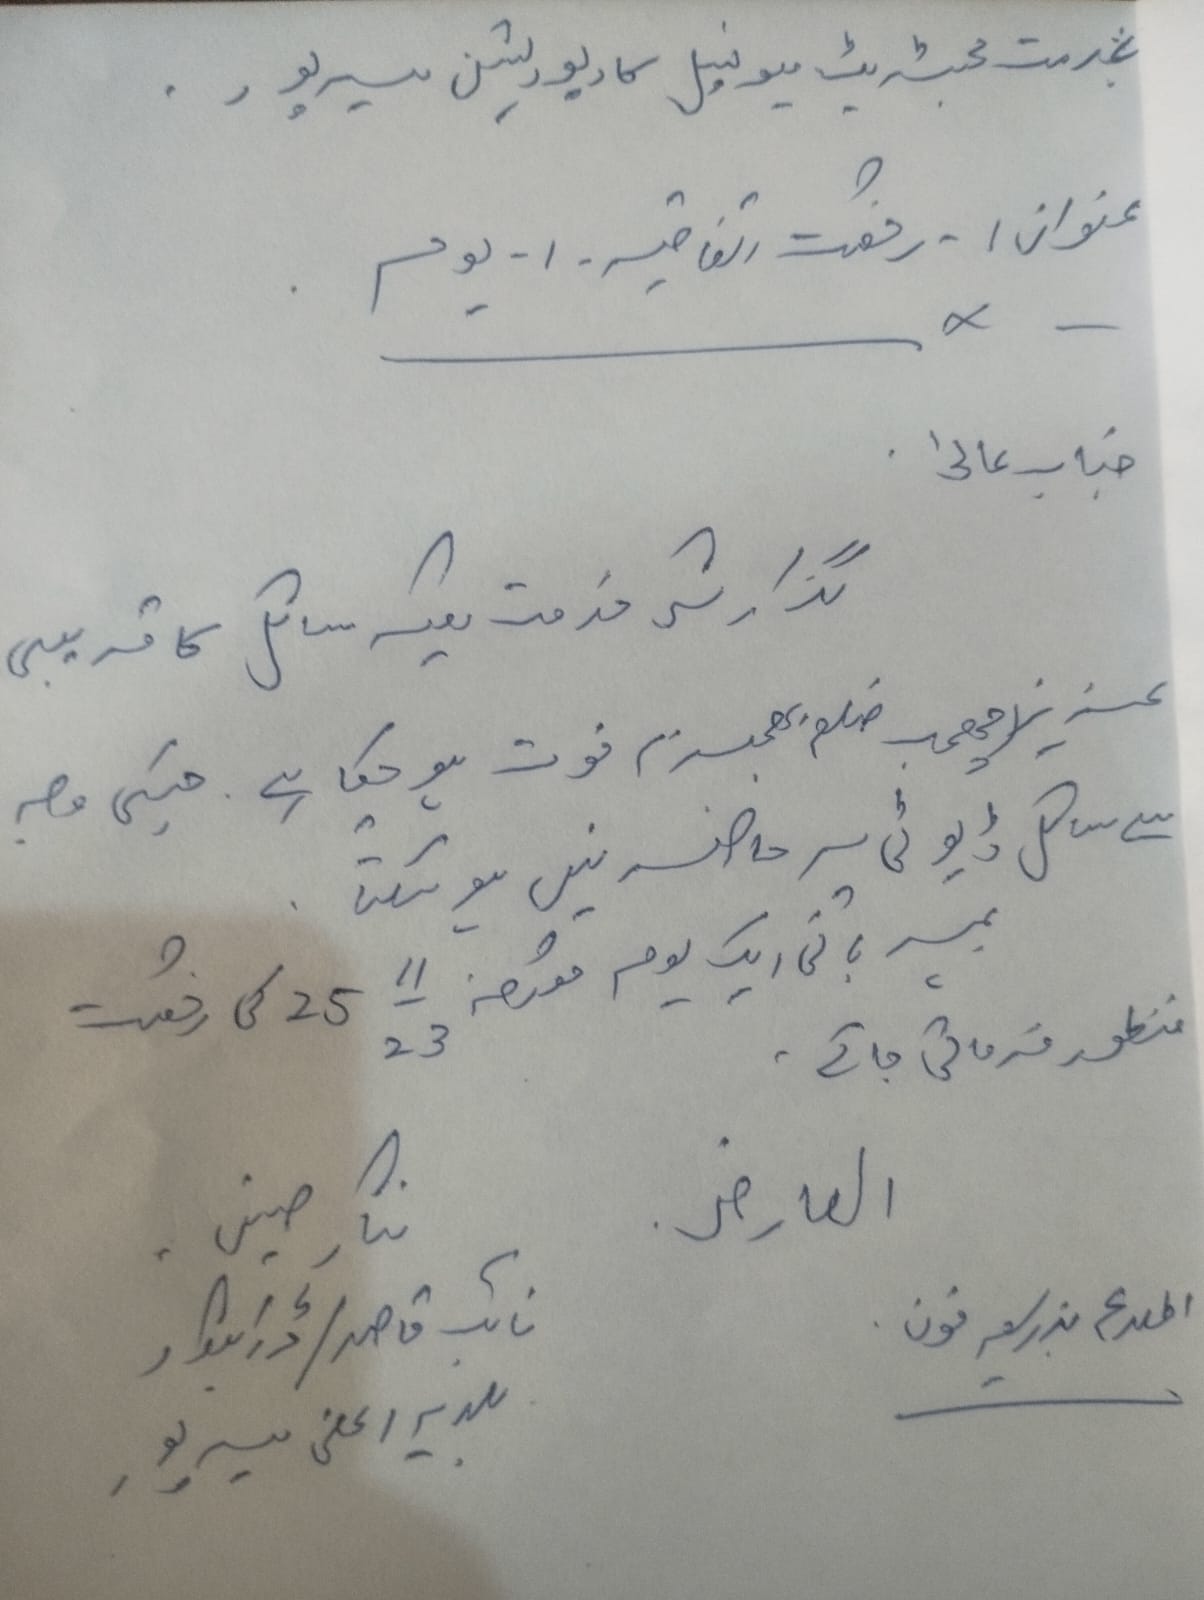 بخدمت مجسٹریٹ میونسپل کارپوریشن میرپور ۔
عنوان :- رخصت اتفاقیہ -1- یوم
جناب عالیٰ ۔
گذارش خدمت ہیکہ سائل کا قریبی
عزیز چھمب ضلع بھمبر میں فوت ہو چکا ہے ۔ جسکی وجہ
سے سائل ڈیوٹی پر حاضر نہیں ہو سکتا ۔
مہربانی ایک یوم مورخہ 23/11 25 کی رخصت
منظور فرمائی جائے ۔
العارض ۔
نثار حسین ۔
نائب قاصد/ڈرائیور
بلدیہ اعلیٰ میرپور
اطلاع بذریعہ فون ۔